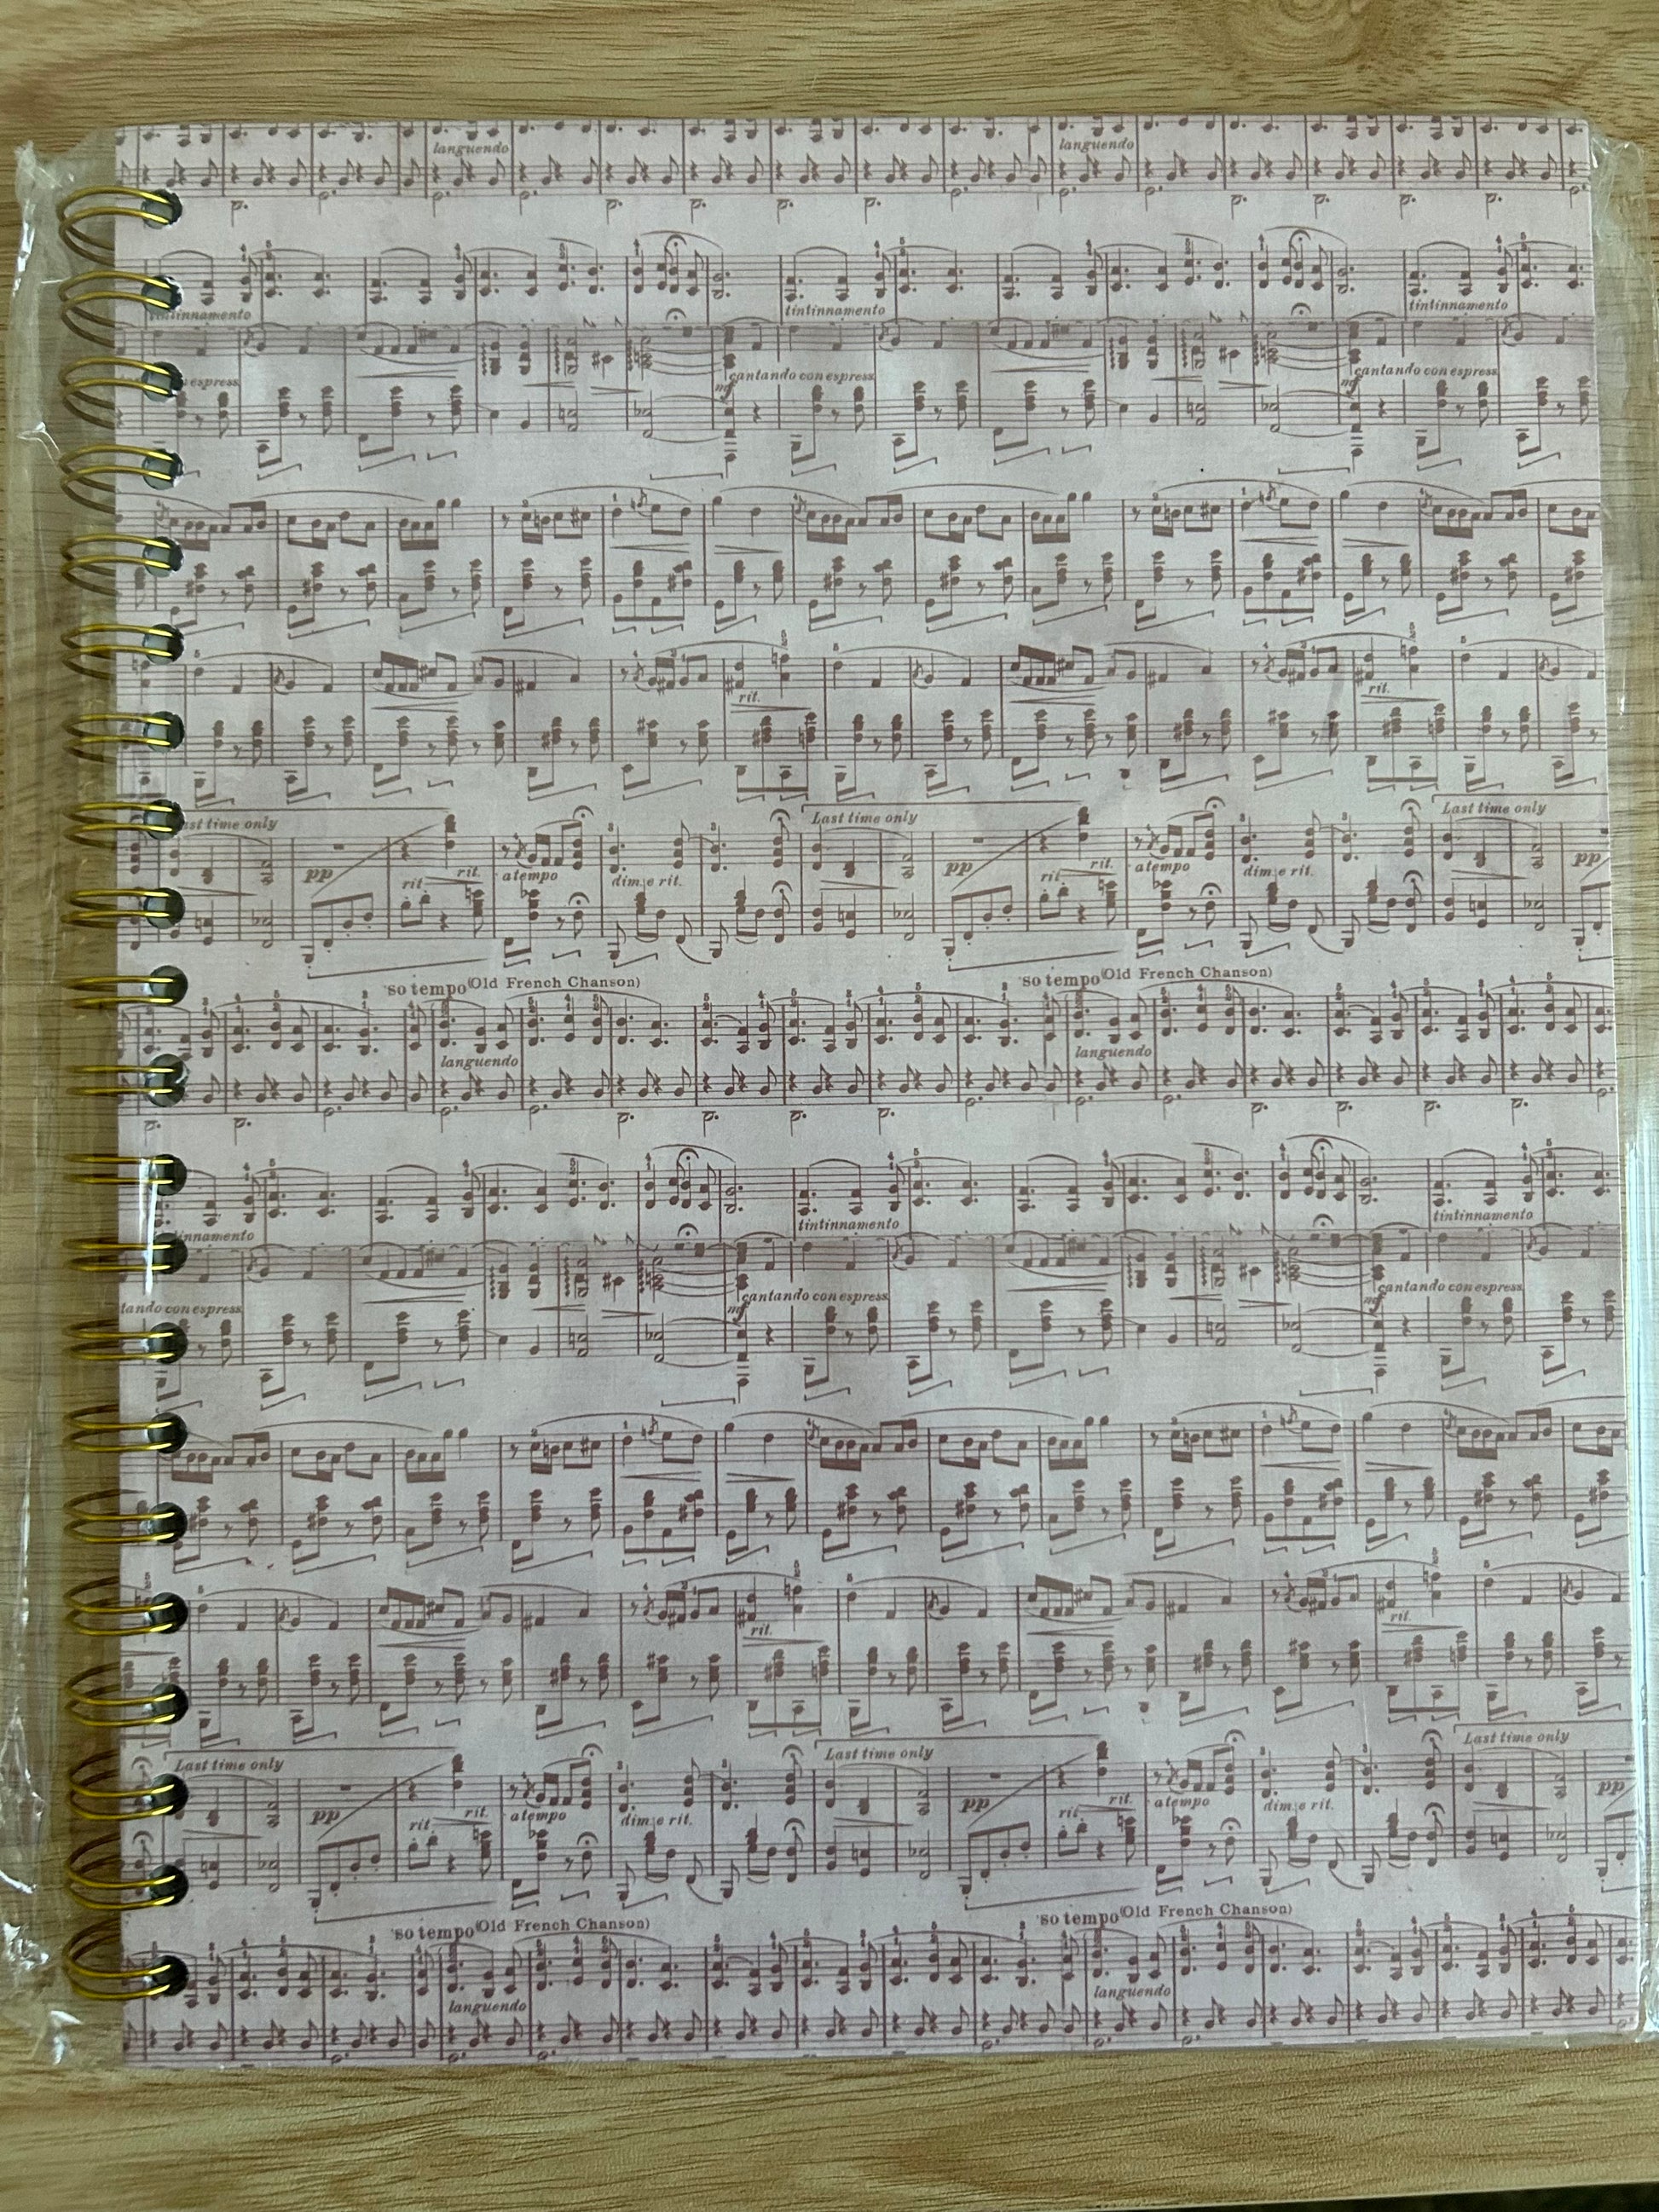 languendo languendo
tintinnamento tintinnamento tintinnamento
espress. cantando con espress. cantando con espress.
mf mf
rit. rit.
Last time only Last time only Last time only
pp rit. rit. a tempo dim. e rit. pp rit. rit. a tempo dim. e rit. pp
so tempo (Old French Chanson) so tempo (Old French Chanson)
languendo languendo
tinnamento tintinnamento tintinnamento
tando con espress. cantando con espress. cantando con espress.
mf mf
rit. rit.
Last time only Last time only Last time only
pp rit. rit. a tempo dim. e rit. pp rit. rit. a tempo dim. e rit. pp
so tempo (Old French Chanson) so tempo (Old French Chanson)
languendo languendo